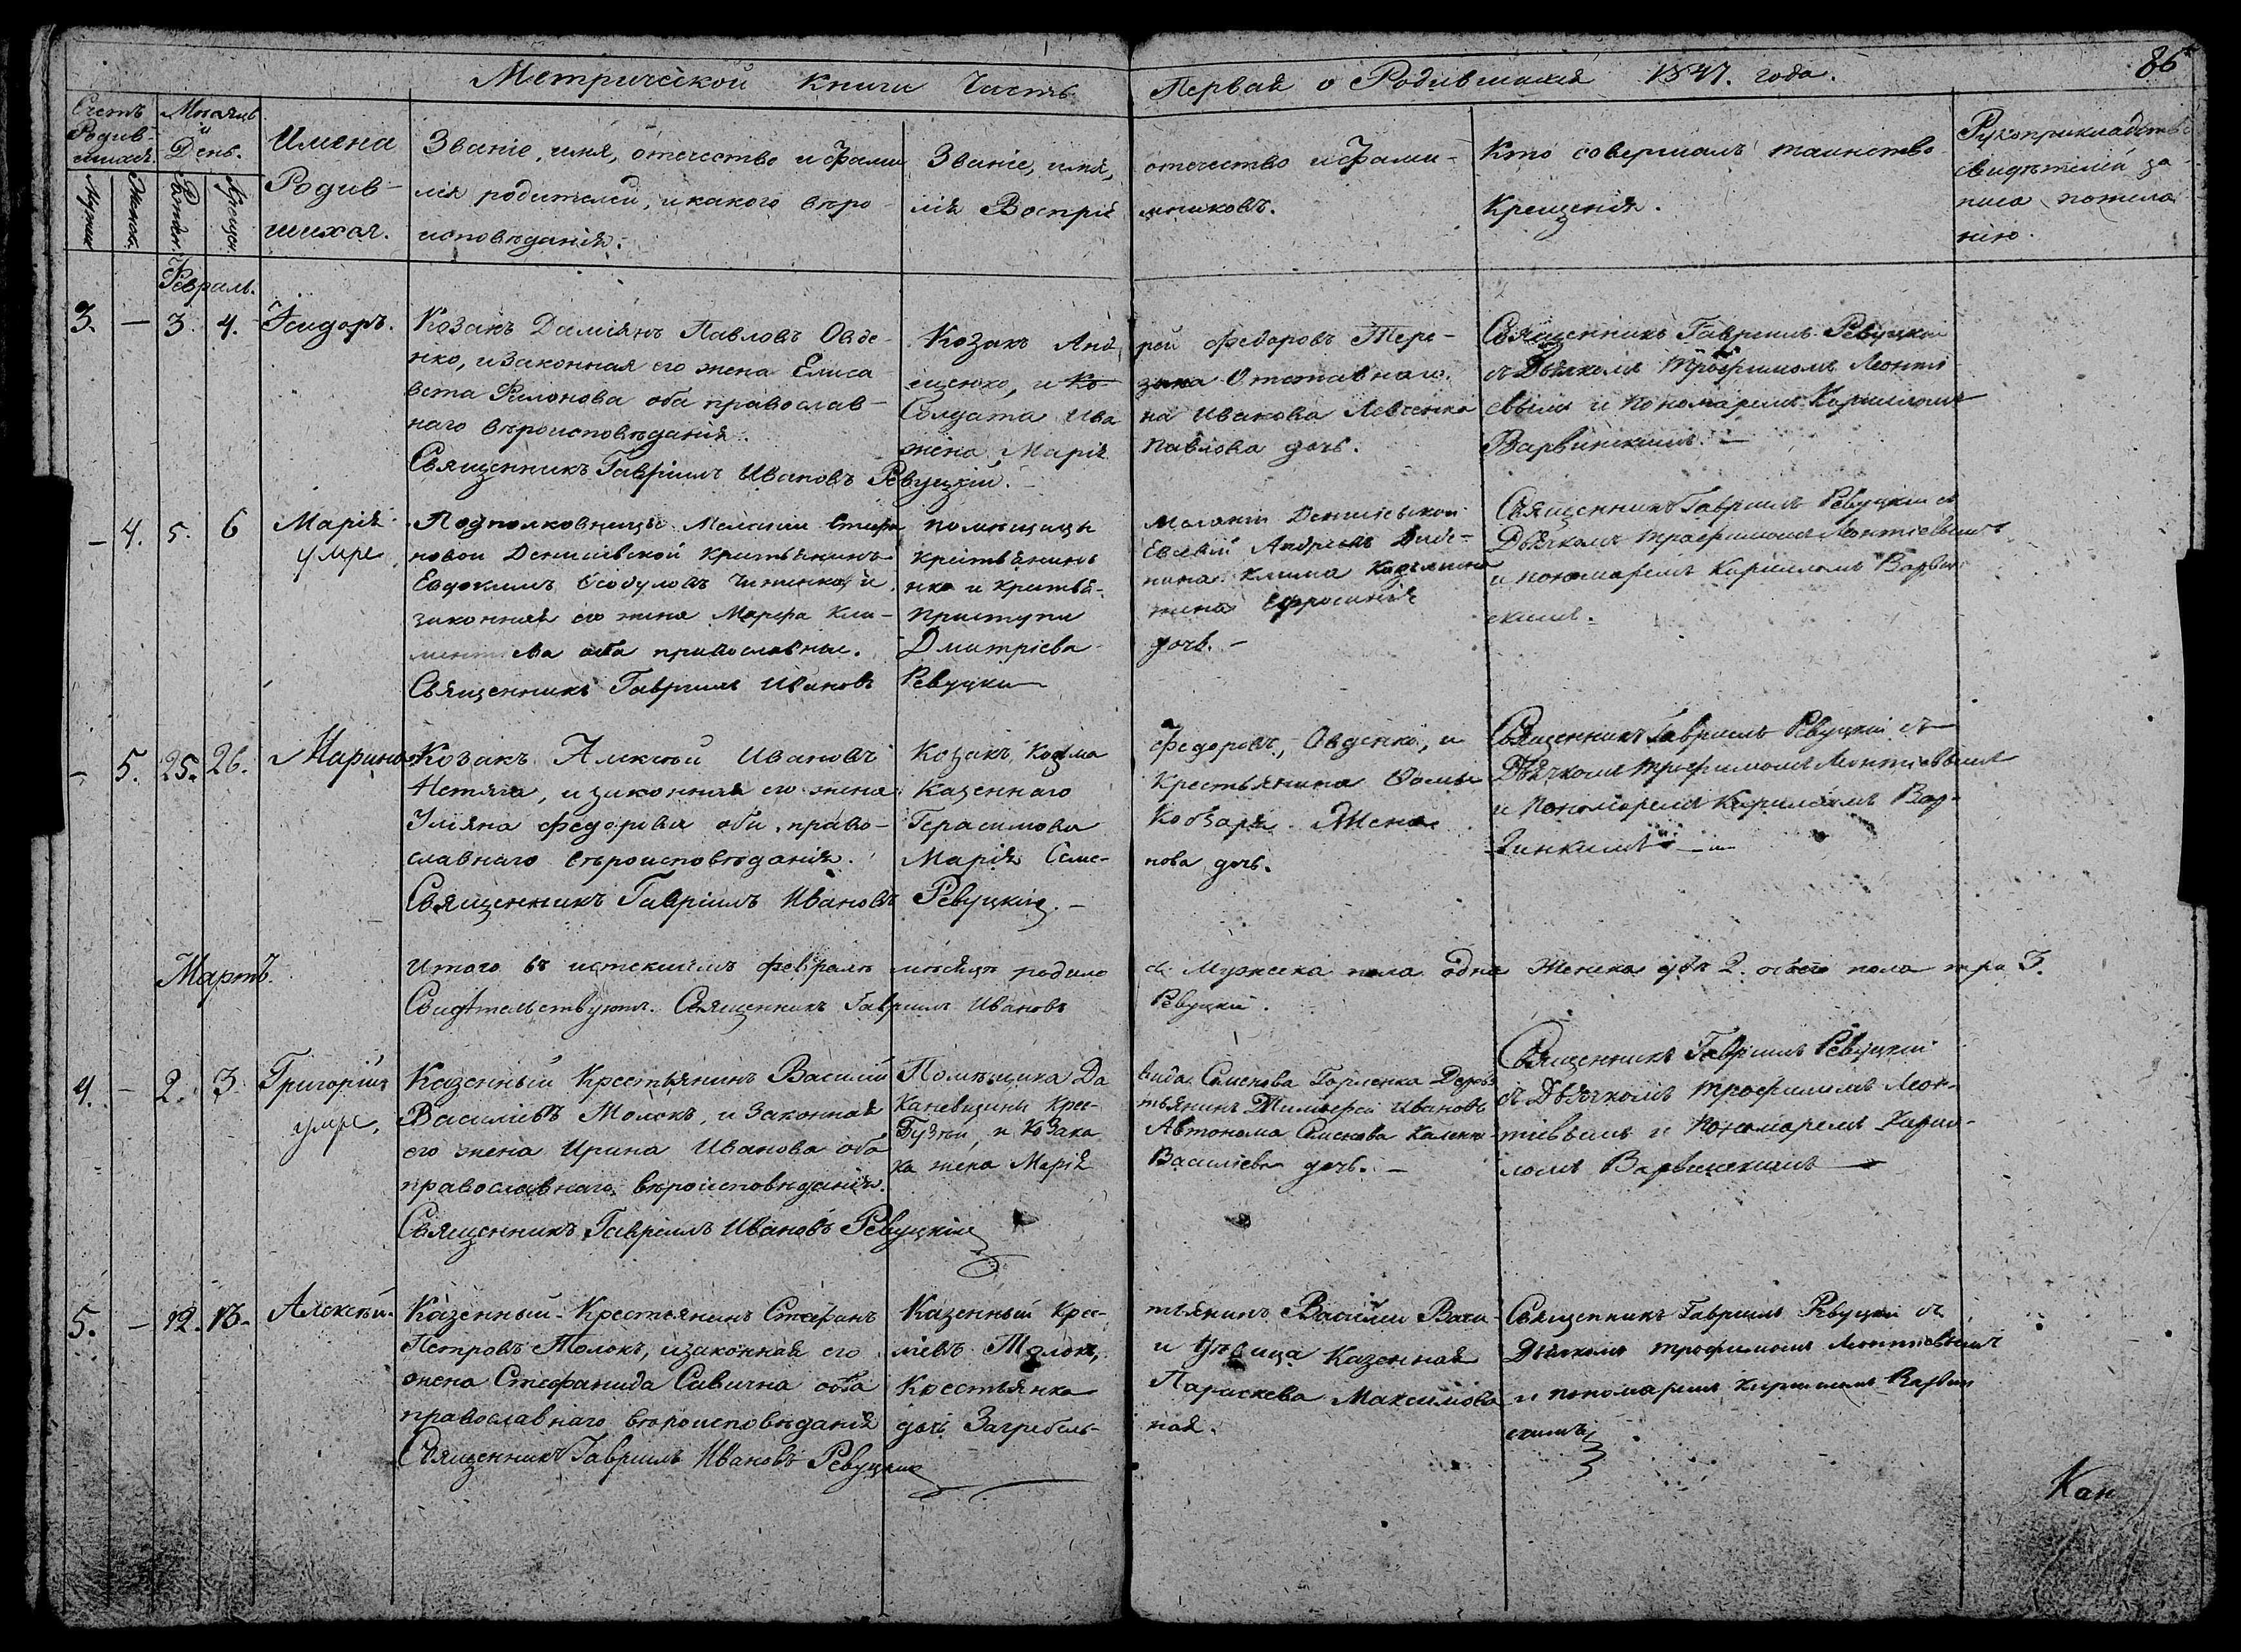 Метрической книги Часть Первая о Родившихся 1847. года.
86
Счетъ Родив-шихся.
Мѣсяцъ и День.
Мужск.
Женск.
Рожден.
Крещен.
Имена Родив-шихся.
Званіе, имя, отечество и фами
лія родителей, и какого вѣро-
исповѣданія.
Званіе, имя, отечество и фами-
лія Воспріемниковъ.
Кто совершалъ таинство
Крещенія.
Рукоприкладство
свидѣтелей за
писа по жела
нію.
Февраль.
3. — 3. 4. Исидоръ.
Козакъ Даміянъ Павловъ Овде-
нко, и законная его жена Елиса
вета Филонова оба православ-
наго вѣроисповѣданія.
Священникъ Гавріилъ Ивановъ Ревуцкій.
Козакъ Анд рей Федоровъ Тере-
щенко, и Отставнаго
Солдата Ива на Иванова Левченка
жена Марія Павлова дочь.
Священникъ Гавріилъ Ревуцкій
съ Дьячкомъ Трофимомъ Леонті
евымъ и Пономаремъ Кариломъ
Варвинскимъ. —
— 4. 5. 6 Марія
умре
Подполковницы Меланіи Стефа
новой Денисіевской крестьянинъ
Евдокимъ и
законная его жена Марфа Кли-
ментіева оба православные.
Священникъ Гавріилъ Ивановъ Ревуцкій
помѣщицы Меланіи Денисіевской
крестьянинъ Евсевій Андреевъ Диде-
нко и крестья-нина Клима
Приступи жена Ефросинія
Дмитріева дочь. —
Священникъ Гавріилъ Ревуцкій съ
Дьячкомъ Трофимомъ Леонтіевымъ
и пономаремъ Кариломъ Варвин
скимъ.
— 5. 25. 26. Марина
Козакъ Алексѣй Ивановъ
Нетяга, и законная его жена
Уліяна Федорова оба право-
славнаго вѣроисповѣданія.
Священникъ Гавріилъ Ивановъ Ревуцкій. —
Козакъ Козма Федоровъ, Овденко, и
Казеннаго Крестьянина Фомы
Герасимова Кобзаря Жена
Марія Семе-нова дочь.
Священникъ Гавріилъ Ревуцкій съ
Дьячкомъ Трофимомъ Леонтіевымъ
и Пономаремъ Кариломъ Вар-
винскимъ —
Мартъ.
Итого въ истекшемъ февралѣ мѣсяцѣ родило сь Мужеска пола одно Женска два 2. обоего пола три 3.
Свидѣтельствуютъ. Священникъ Гавріилъ Ивановъ Ревуцкій.
4. — 2. 3. Григорій
умре,
Казенный Крестьянинъ Василій
Василіевъ Молокъ, и Законная
его жена Ирина Иванова оба
православнаго вѣроисповѣданія.
Священникъ Гавріилъ Ивановъ Ревуцкій
Помѣщика Да вида Семенова Горленка Дерев
Каневщины крес-тьянинъ Тимофей Ивановъ
Гузѣй, и Козака Автонома Семенова Калени
ка жена Марія Василіева дочь. —
Священникъ Гавріилъ Ревуцкій
съ Дьячкомъ Трофимомъ Леон-
тіевымъ и Пономаремъ Кари-
ломъ Варвинскимъ —
5. — 12. 13. Алексѣй.
Казенный Крестьянинъ Стефанъ
Петровъ Молокъ, и законная его
жена Стефанида Савична оба
православнаго вѣроисповѣданія
Священникъ Гавріилъ Ивановъ Ревуцкій
Казенный Крес-тьянинъ Василій Васи-
ліевъ Молокъ, и дѣвица Казенная
Крестьянка Параскева Максимова
дочь Загребель-ная.
Священникъ Гавріилъ Ревуцкій съ
Дьячкомъ Трофимомъ Леонтіевымъ
и пономаремъ Кириломъ Варвин
скимъ
Кан